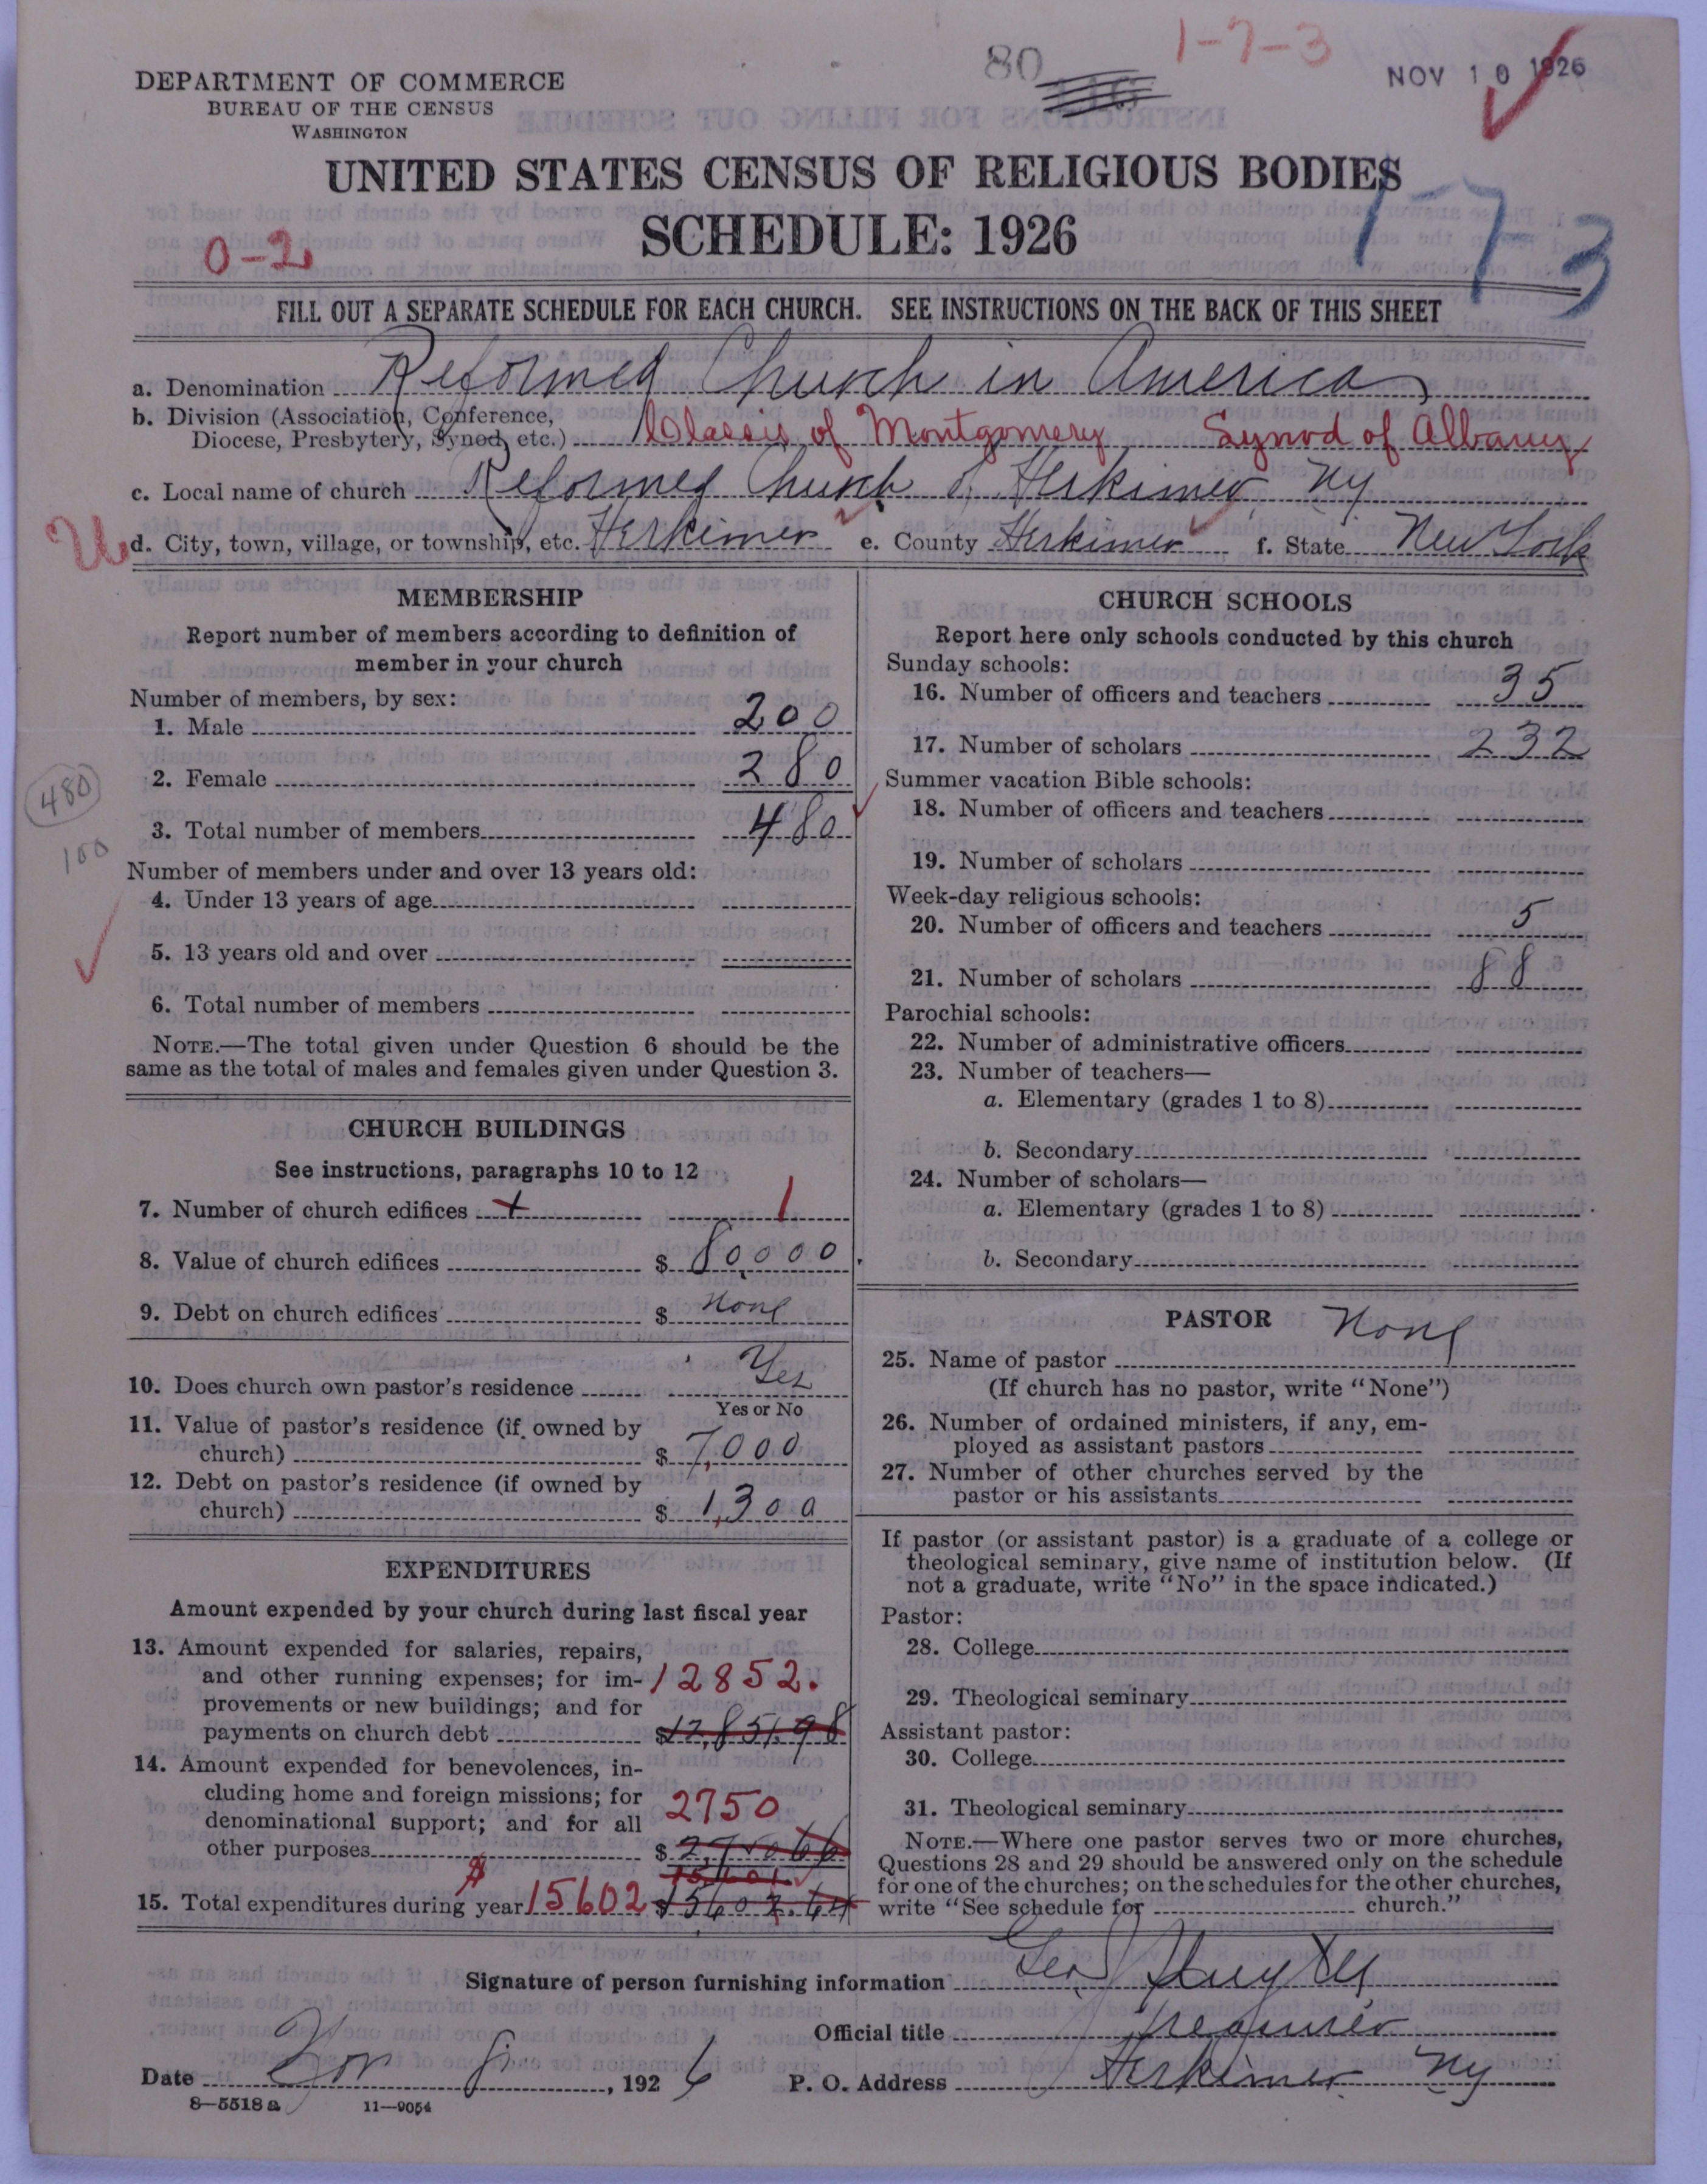 80
1-7-3
NOV 10 1926
DEPARTMENT OF COMMERCE
BUREAU OF THE CENSUS
WASHINGTON
UNITED STATES CENSUS OF RELIGIOUS BODIES
SCHEDULE: 1926
0-2
1-7-3
FILL OUT A SEPARATE SCHEDULE FOR EACH CHURCH. SEE INSTRUCTIONS ON THE BACK OF THIS SHEET
a. Denomination Reformed Church in America
b. Division (Association, Conference,
Diocese, Presbytery, Synod, etc.) Classis of Montgomery Synod of Albany
c. Local name of church Reformed Church of Herkimer, Ny
U d. City, town, village, or township, etc. Herkimer e. County Herkimer f. State New York
MEMBERSHIP
Report number of members according to definition of
member in your church
Number of members, by sex:
1. Male 200
2. Female 280
480
3. Total number of members 480
100
Number of members under and over 13 years old:
4. Under 13 years of age
5. 13 years old and over
6. Total number of members
NOTE.—The total given under Question 6 should be the
same as the total of males and females given under Question 3.
CHURCH BUILDINGS
See instructions, paragraphs 10 to 12
7. Number of church edifices + 1
8. Value of church edifices $ 80,000
9. Debt on church edifices $ None
10. Does church own pastor's residence Yes
Yes or No
11. Value of pastor's residence (if owned by
church) $ 7,000
12. Debt on pastor's residence (if owned by
church) $ 1,300
EXPENDITURES
Amount expended by your church during last fiscal year
13. Amount expended for salaries, repairs,
and other running expenses; for im- 12852.
provements or new buildings; and for
payments on church debt $12,851.98
14. Amount expended for benevolences, in-
cluding home and foreign missions; for 2750
denominational support; and for all
other purposes $ 2,750.66
15601
15. Total expenditures during year $ 15602 $15602.64
CHURCH SCHOOLS
Report here only schools conducted by this church
Sunday schools:
16. Number of officers and teachers 35
17. Number of scholars 232
Summer vacation Bible schools:
18. Number of officers and teachers
19. Number of scholars
Week-day religious schools:
20. Number of officers and teachers 5
21. Number of scholars 88
Parochial schools:
22. Number of administrative officers
23. Number of teachers—
a. Elementary (grades 1 to 8)
b. Secondary
24. Number of scholars—
a. Elementary (grades 1 to 8)
b. Secondary
PASTOR
25. Name of pastor None
(If church has no pastor, write "None")
26. Number of ordained ministers, if any, em-
ployed as assistant pastors
27. Number of other churches served by the
pastor or his assistants
If pastor (or assistant pastor) is a graduate of a college or
theological seminary, give name of institution below. (If
not a graduate, write "No" in the space indicated.)
Pastor:
28. College
29. Theological seminary
Assistant pastor:
30. College
31. Theological seminary
NOTE.—Where one pastor serves two or more churches,
Questions 28 and 29 should be answered only on the schedule
for one of the churches; on the schedules for the other churches,
write "See schedule for church."
Signature of person furnishing information Geo
Official title Treasurer
Date Nov 8, 1926 P. O. Address Herkimer Ny
8—5518a 11—9054